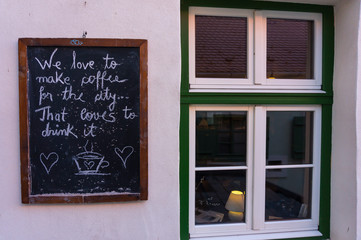 We love to
make coffee
for the city...
That loves to
drink it